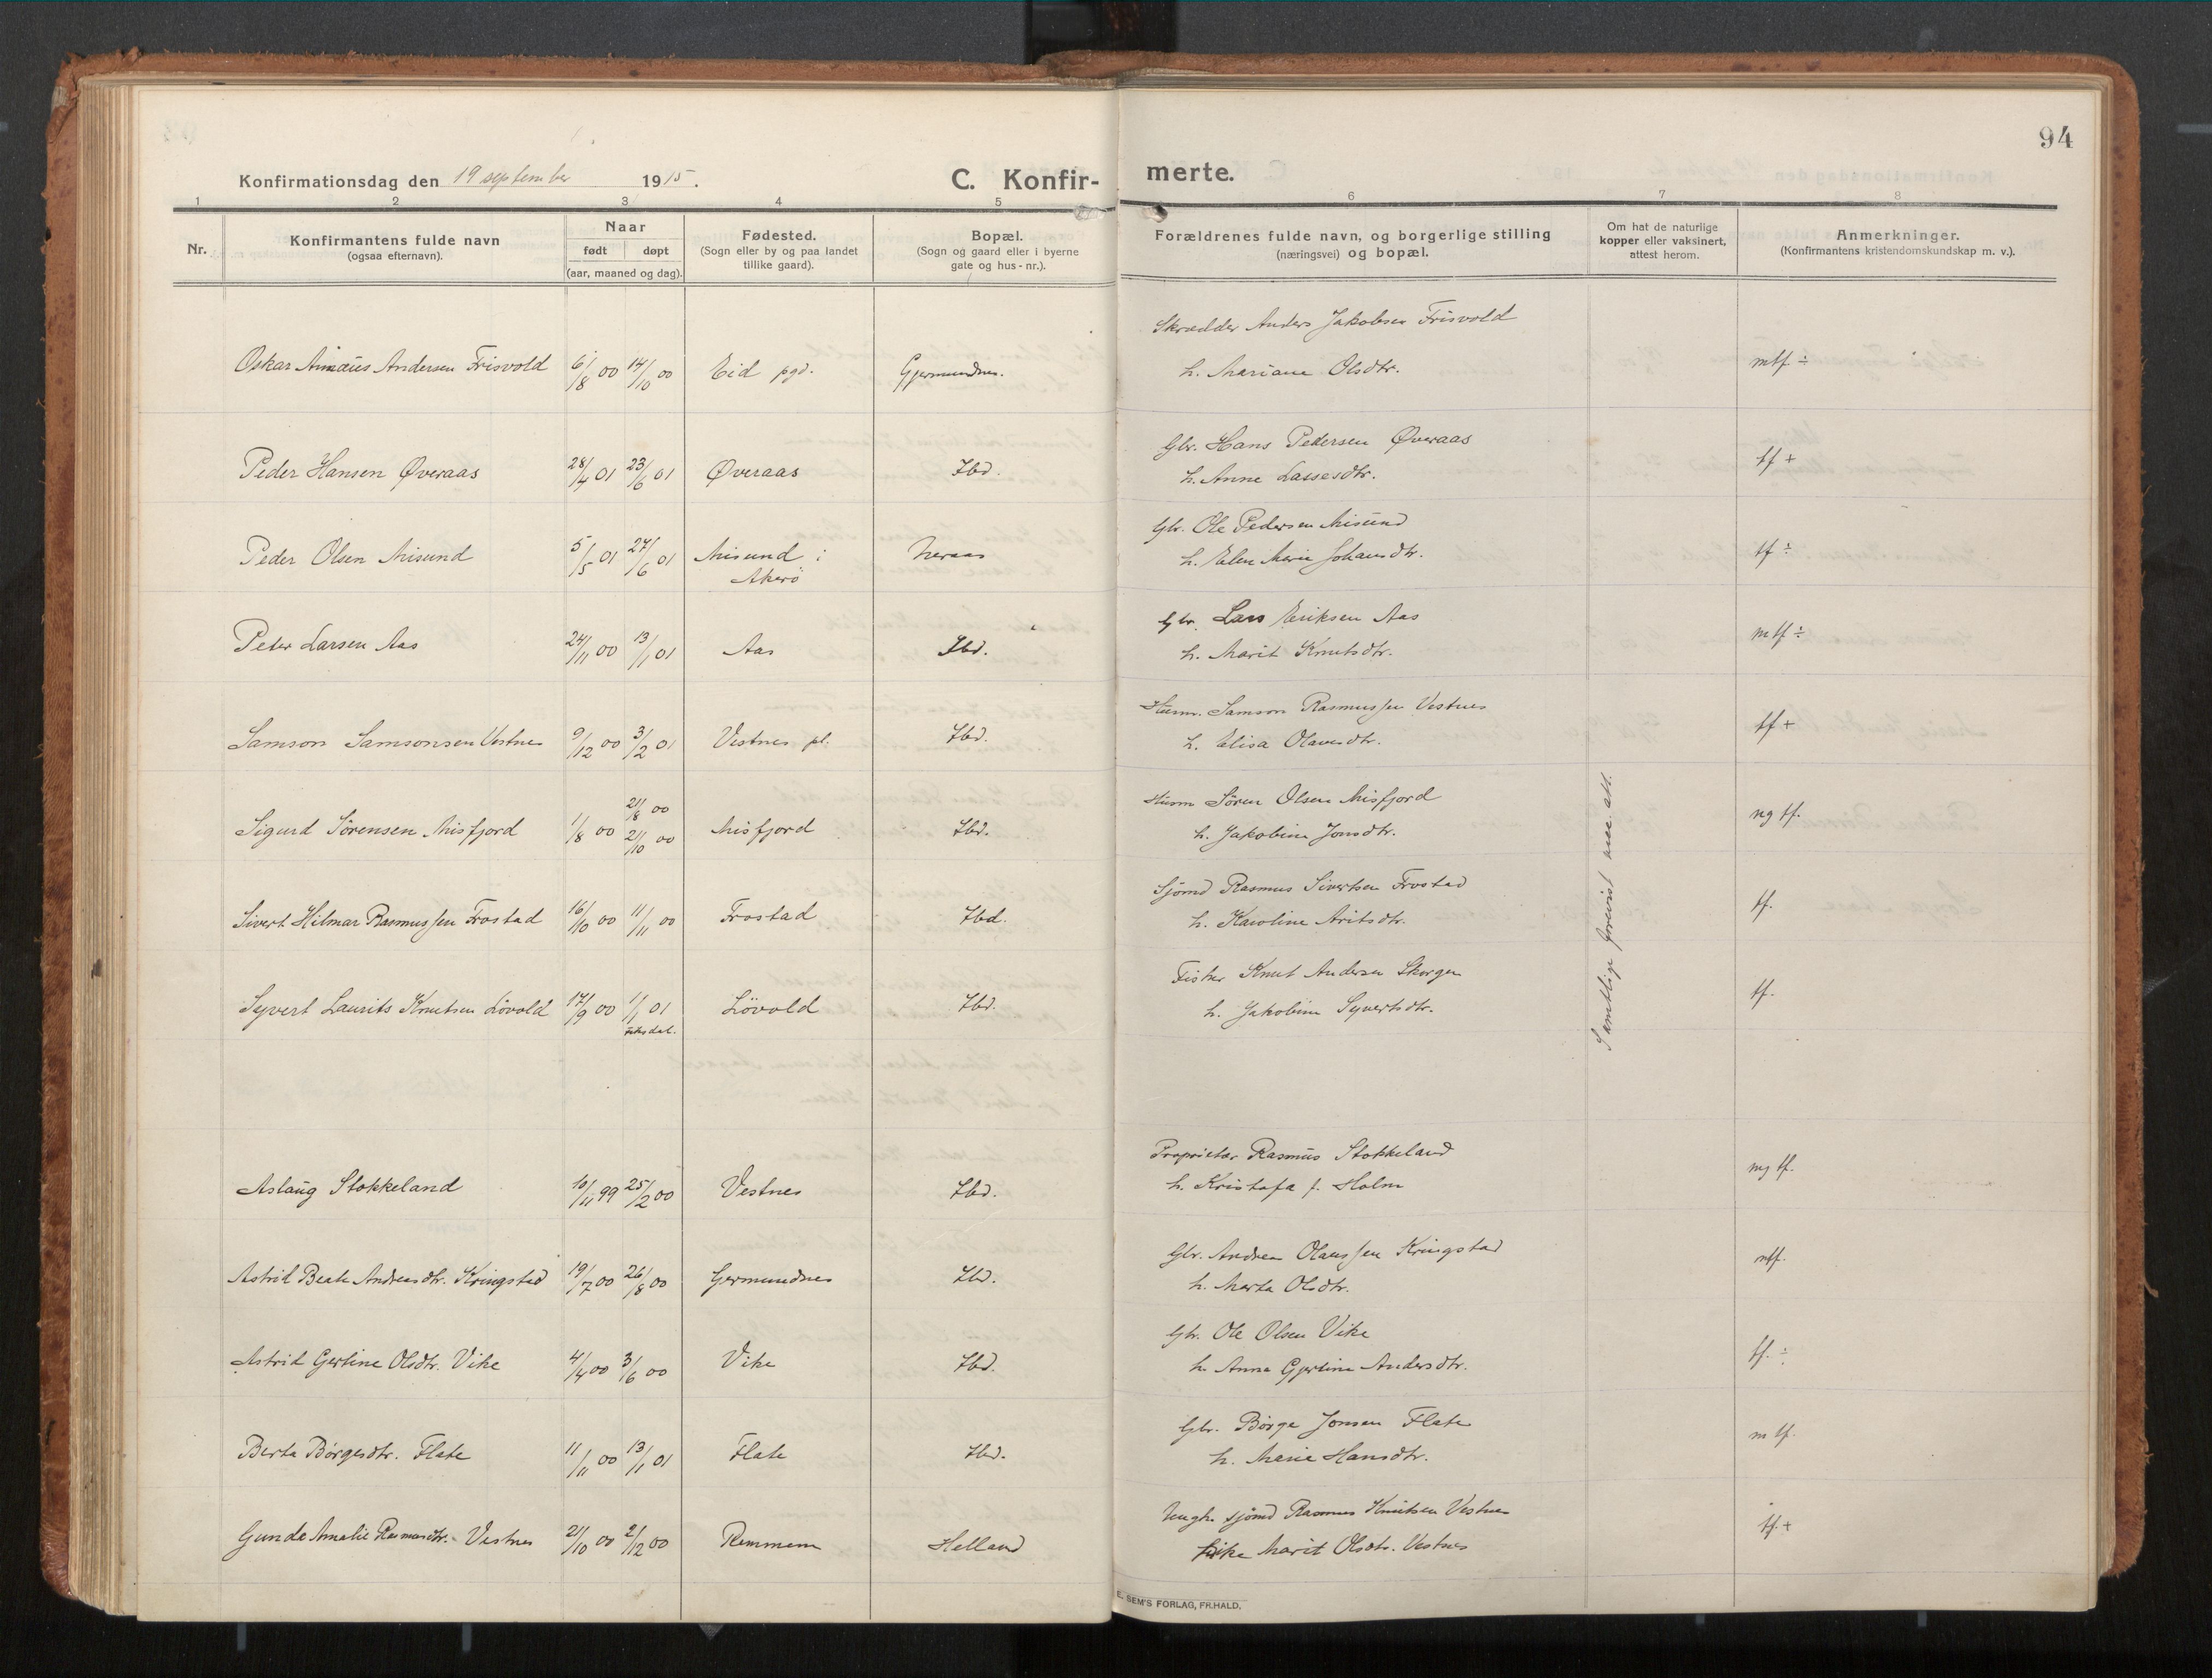 94
Konfirmationsdag den 19 september 1915. C. Konfir- merte.
1 2 3 4 5 6 7 8
Nr. Konfirmantens fulde navn (ogsaa efternavn). Naar født døpt (aar, maaned og dag). Fødested. (Sogn eller by og paa landet tillike gaard). Bopæl. (Sogn og gaard eller i byerne gate og hus-nr.). Forældrenes fulde navn, og borgerlige stilling (næringsvei) og bopæl. Om hat de naturlige kopper eller vaksinert, attest herom. Anmerkninger. (Konfirmantens kristendomskundskap m. v.).
Skrædder Anders Jakobsen Frisvold
Oskar Andersen Frisvold 6/8 00 14/10 00 Eid pgd. Gjermundnes. h. Mariane Olsdtr. mtf. ÷
Gbr. Hans Pedersen Øveraas
Peder Hansen Øveraas 28/4 01 23/6 01 Øveraas Ibd. h. Anne Lassesdtr. tf +
Gbr. Ole Pedersen Misund
Peder Olsen Misund 5/5 01 27/6 01 Misund i Neraas h. Elen Marie Johansdtr. tf ÷
Akerö
Gbr. Lars Eriksen Aas
Peter Larsen Aas 24/11 00 13/1 01 Aas Ibd. h. Marit Knutsdtr. mtf ÷
Husm. Samson Rasmussen Vestnes
Samson Samsonsen Vestnes 9/12 00 3/2 01 Vestnes pl. Ibd. h. Elisa Olavesdtr. tf +
21/8 00
Husm Sören Olsen Misfjord
Sigurd Sörensen Misfjord 1/8 00 21/10 00 Misfjord Ibd. h. Jakobine Jonsdtr. mg tf.
Sjömd Rasmus Sivertsen Frostad
Sivert Hilmar Rasmussen Frostad 16/10 00 11/11 00 Frostad Ibd. h. Karoline Aritsdtr. tf.
Fisker Knut Andersen Skorgen
Syvert Laurits Knutsen Lövold 17/9 00 1/1 01 Lövold Ibd. h. Jakobine Syvertsdtr. tf.
Fiksdal.
Samtlige forevist vac. att.
Proprietær Rasmus Stokkeland
Aslaug Stokkeland 10/11 99 25/2 00 Vestnes Ibd. h. Kristofa f. Holm mg tf.
Gbr. Andreas Olaussen Kringstad
Astrid Beate Andreasdtr. Kringstad 19/7 00 26/8 00 Germundnes Ibd. h. Marta Olsdtr. mtf.
Gbr. Ole Olsen Vike
Astrid Gertine Olsdtr. Vike 4/4 00 3/6 00 Vike Ibd. h. Anna Gjertine Andersdtr. tf. ÷
Gbr. Börge Jonsen Flate
Berta Börgesdtr. Flate 11/11 00 13/1 01 Flate Ibd. h. Marie Hansdtr. m tf.
Ungk. sjömd Rasmus Knutsen Vestnes
Gunda Amalie Rasmusdtr. Vestnes 21/10 00 2/12 00 Remmem Helland Pike Marit Olsdtr. Vestnes tf. +
E. SEM'S FORLAG, FR.HALD.